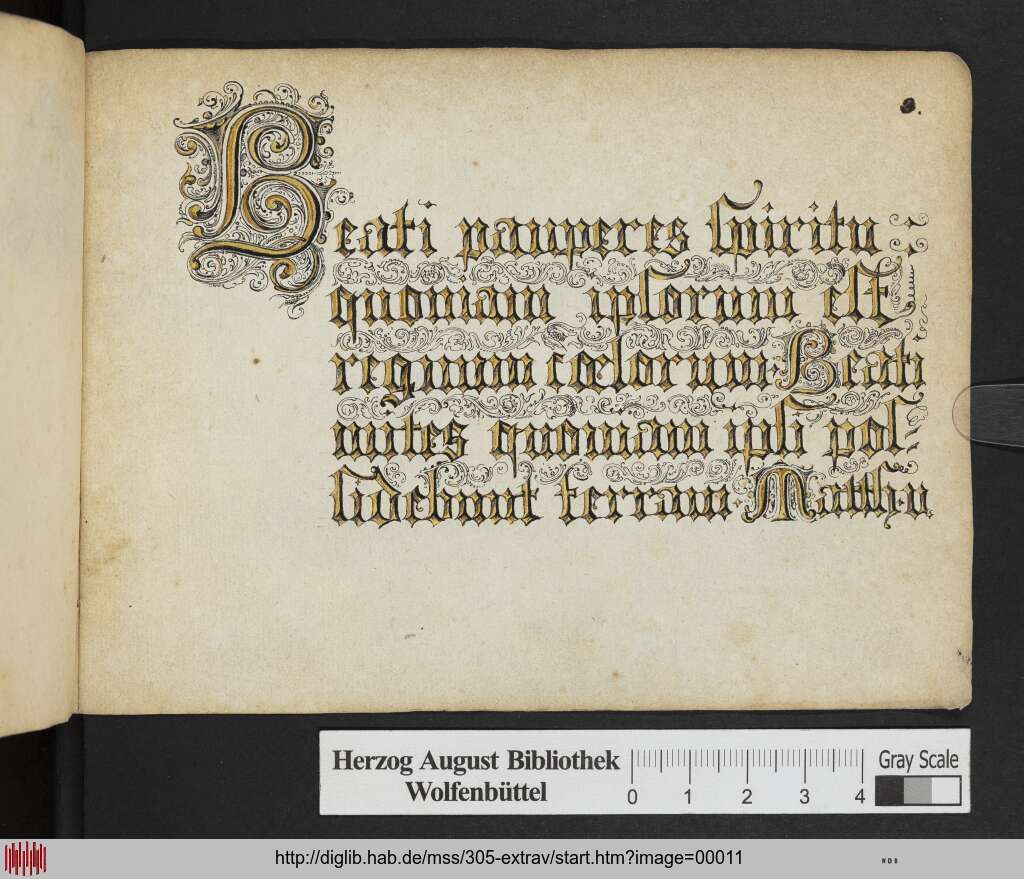 Beati pauperes spiritu
quoniam ipsorum est
regnum cœlorum. Beati
mites quoniam ipsi pos-
sidebunt terram. Matth. v.
Herzog August Bibliothek
Wolfenbüttel
0 1 2 3 4
Gray Scale
http://diglib.hab.de/mss/305-extrav/start.htm?image=00011